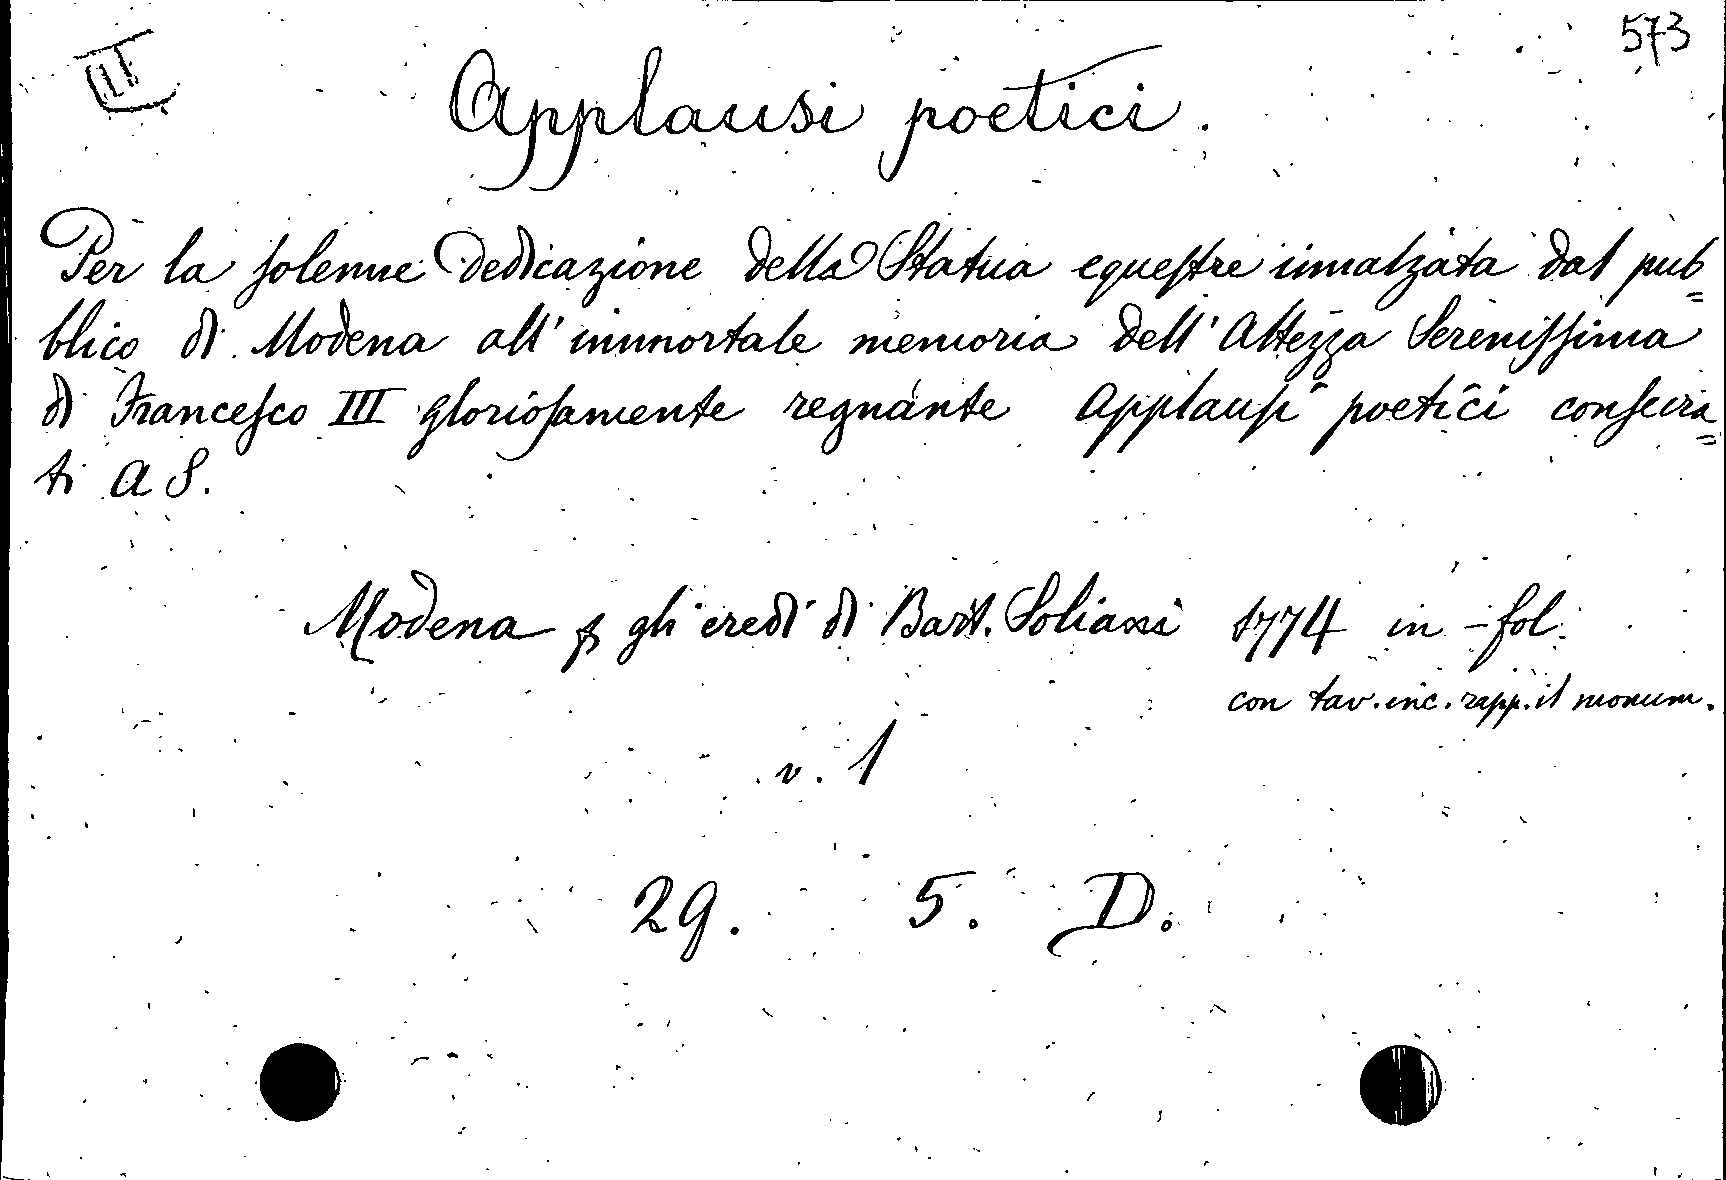 573
Applausi poetici.
Per la solenne Dedicazione della Statua equestre innalzata dal pub=
blico di Modena all' immortale memoria dell' Altezza Serenissima
di Francesco III gloriosamente regnante Applausi poetici consecra=
ti A S.
Modena p gli eredi di Bart. Soliani 1774 in-fol.
con tav. inc. rapp. il monum.
v. 1
29. 5. D.